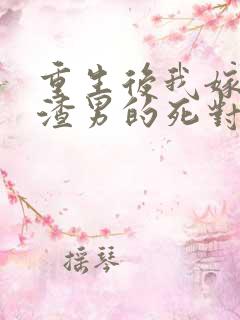 重生後我嫁
渣男的死對
搖琴